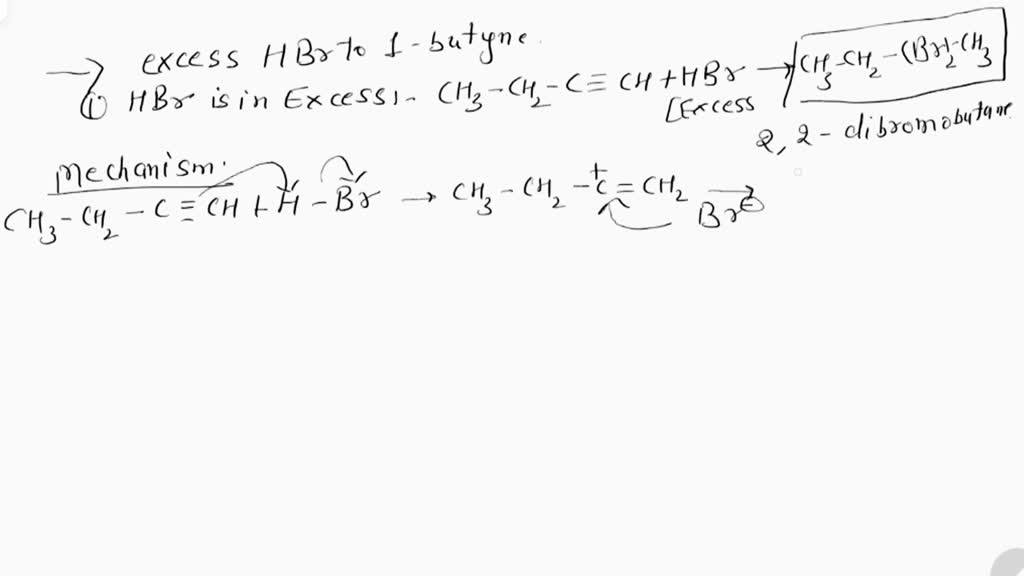 → excess HBr to 1-butyne.
① HBr is in Excess:- CH₃-CH₂-C≡CH+HBr → CH₃-CH₂-C(Br)₂-CH₃
[Excess
2,2-dibromobutane
Mechanism.
CH₃-CH₂-C≡CH+H-Br → CH₃-CH₂-C⁺=CH₂ → Br⊖